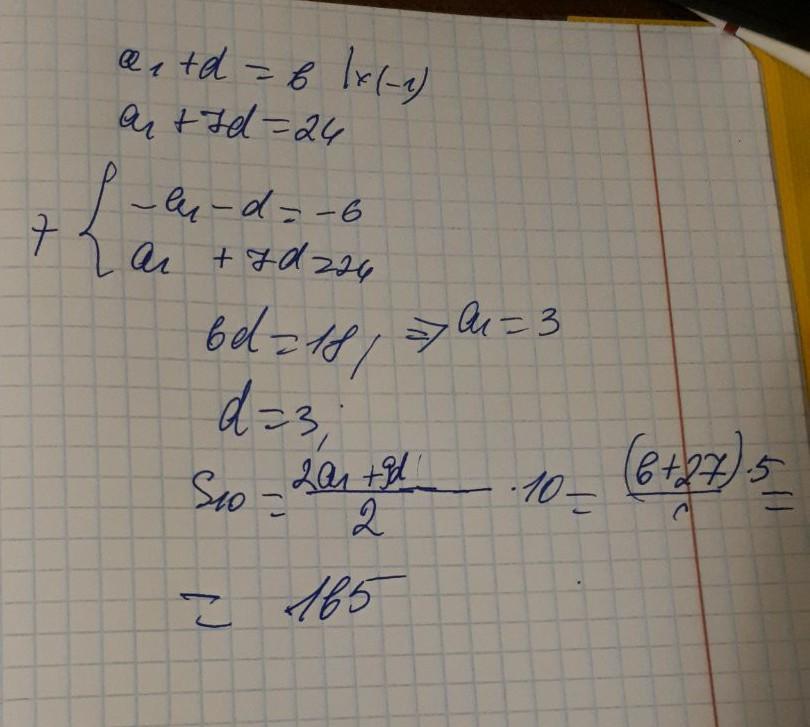 a₁ + d = 6 |×(-1)
a₁ + 7d = 24
+ { -a₁ - d = -6
a₁ + 7d = 24
6d = 18, ⇒ a₁ = 3
d = 3,
S₁₀ = (2a₁ + 9d)/2 · 10 = (6+27)·5 =
= 165